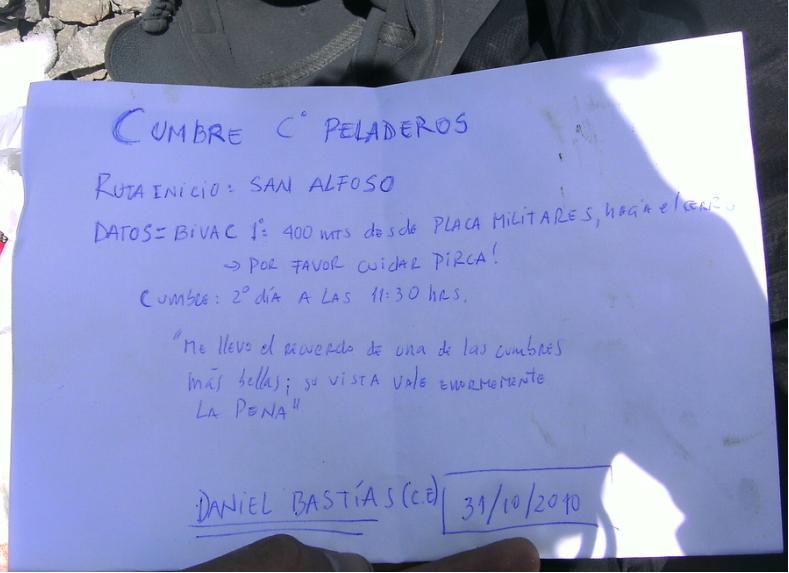 CUMBRE C° PELADEROS
RUTA INICIO: SAN ALFOSO
DATOS= BIVAC 1°: 400 mts desde PLACA MILITARES, hacia el
→ POR FAVOR CUIDAR PIRCA!
CUMBRE: 2° día A LAS 11:30 hrs.
"Me llevo el recuerdo de una de las cumbres
más bellas; su vista vale enormemente
LA PENA"
DANIEL BASTÍAS (C.E) 31/10/2010